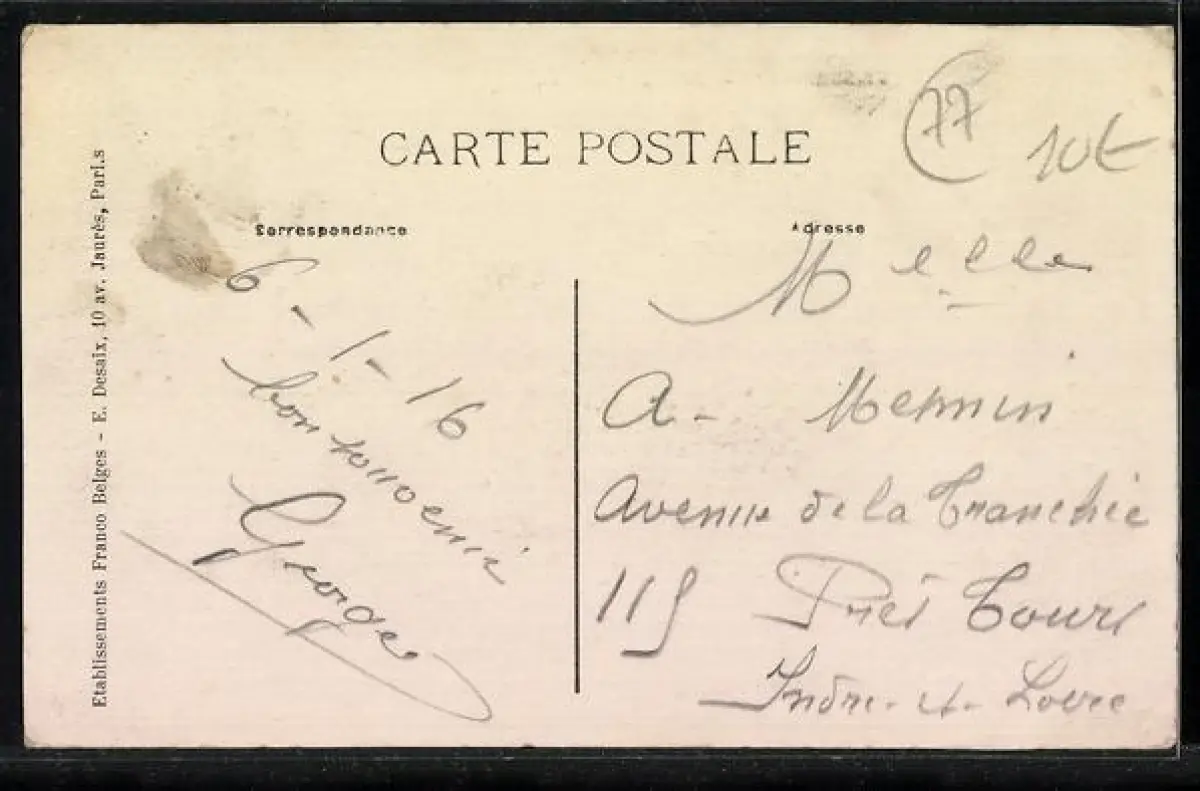 CARTE POSTALE
77
10€
Correspondance
Adresse
Etablissements Franco Belges - E. Desaix, 10 av. Jaurès, Pari.s
6-1-16
bon
Georges
Melle
A- Mesmin
Avenue de la Tranchée
115 Près Tours
Indre-et-Loire